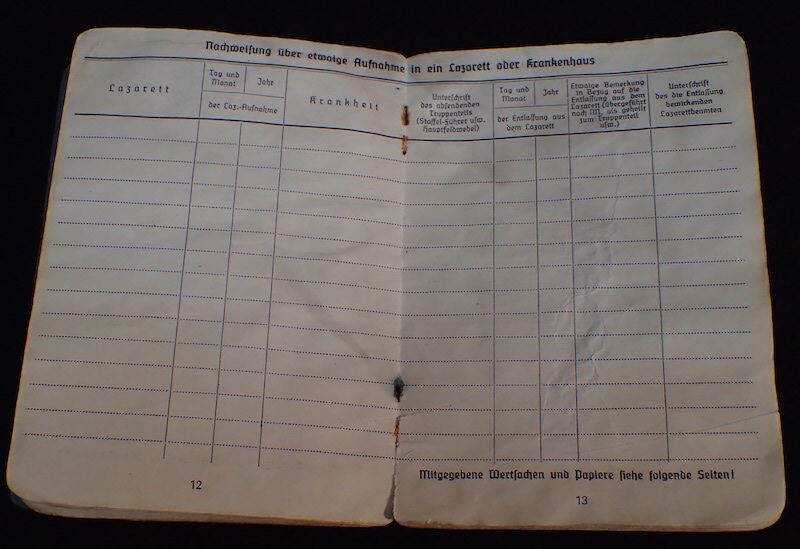 Nachweisung über etwaige Aufnahme in ein Lazarett oder Krankenhaus
Lazarett
Tag und
Monat
Jahr
der Laz.-Aufnahme
Krankheit
Unterschrift
des absendenden
Truppenteils
(Staffel-Führer usw.
Hauptfeldwebel)
Tag und
Monat
Jahr
der Entlassung aus
dem Lazarett
Etwaige Bemerkung
in Bezug auf die
Entlassung aus dem
Lazarett (übergeführt
nach [?], als geheilt
zum Truppenteil
usw.)
Unterschrift
des die Entlassung
bewirkenden
Lazarettbeamten
12
Mitgegebene Wertsachen und Papiere siehe folgende Seiten!
13